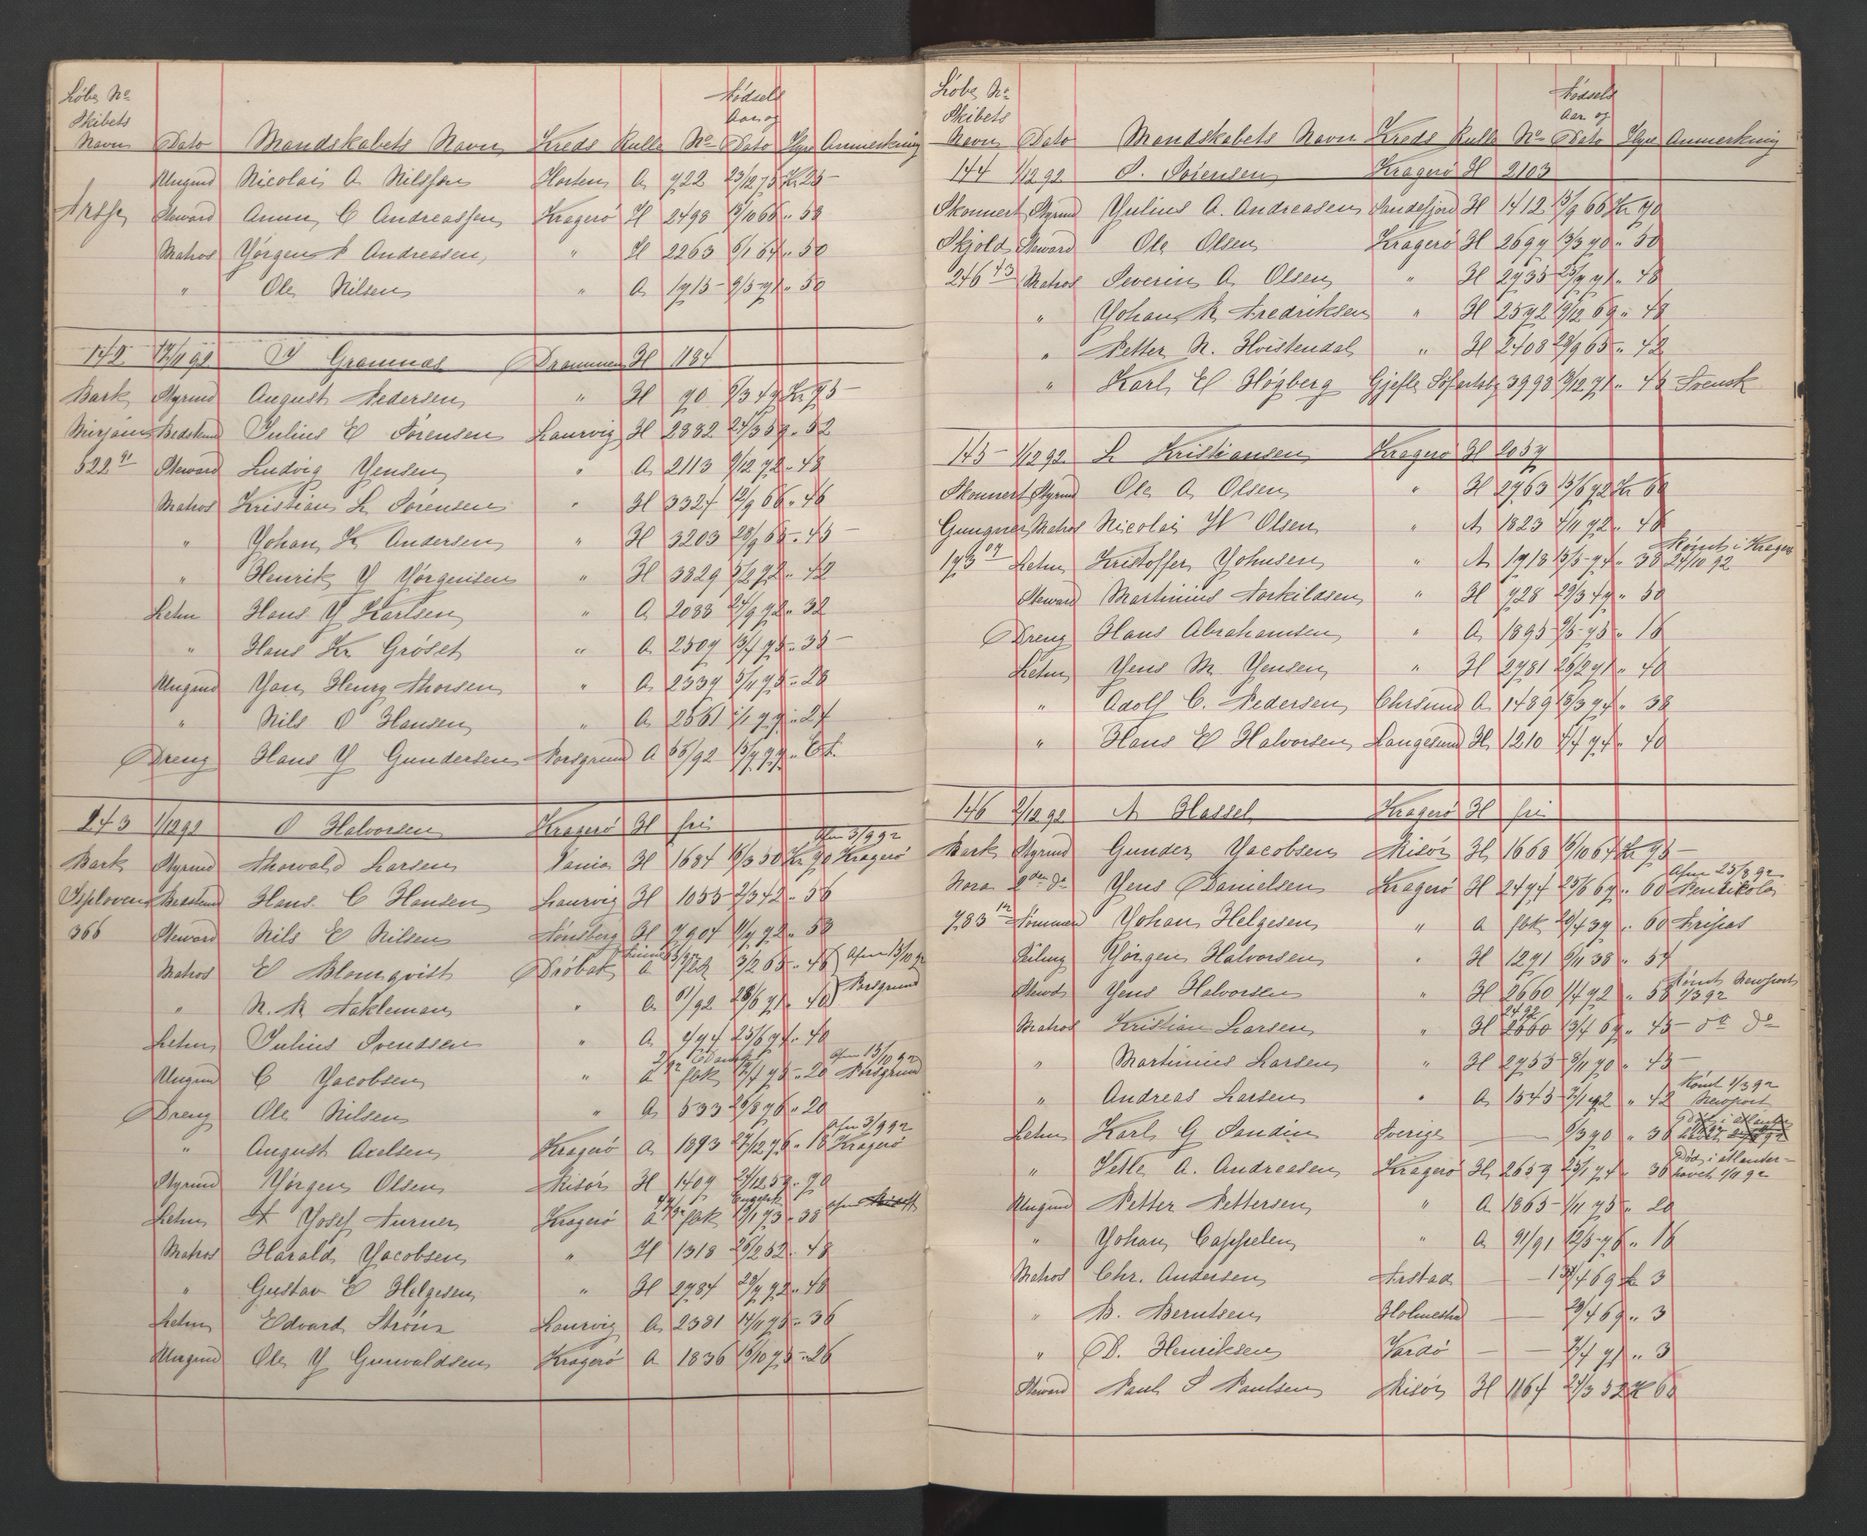 Løbe No
Skibets
Navn Dato Mandskabets Navn Kreds Rulle No Fødsels Aar og Dato Hyre Anmerkning
Ungmd Nicolai A Nilssen Horten A 722 23/12 75 Kr 25
Steward Anun C Andreassen Kragerø H 2498 66 " 58
Matros Jørgen A Andreasen " H 2263 6/1 64 " 50
" Ole Nilsen " A 1715 9/5 71 " 50
142 17/11 92 J Gramnæs Drammen H 1184
Bark Styrmd August Pedersen " H 70 5/3 49 Kr 75
Mirjam Bedstmd Julius E Sørensen Laurvig H 2332 24/3 59 " 52
522 91 Steward Ludvig Jensen " A 2113 9/12 72 " 48
Matros Kristian L Sørensen " H 3324 12/9 66 " 46
" Johan K Andersen " H 3203 28/9 65 " 45
" Henrik J Jørgensen " H 3829 5/2 72 " 42
Letm Hans J Karlsen " A 2033 24/9 72 " 32
" Hans Kr Grøset " A 2507 13/4 75 " 35
Ungmd Jan Henry Thorsen " A 2337 5/11 75 " 28
" Nils O Hansen " A 2561 1/1 77 " 24
Dreng Hans J Gundersen Porsgrund A 65/92 15/7 77 "
143 1/12 92 O Halvorsen Kragerø H fri
Bark Styrmd Thorvald Larsen H 1684 18/3 50 Kr 70 Afm 3/9 92 Kragerø
Bedstmd Hans C Hansen Laurvig H 1055 2/3 42 " 56
366 Steward Nils E Nilsen Tønsberg H 7904 9/7 72 " 53
Matros E Blomqvist Drøbak a 3/2 65 " 46 Afm 13/10 92
" N. M Takleman " a 91/92 28/6 71 " 40 Porsgrund
Letm Julius Svendsen " A 494 25/6 74 " 40
Ungmd C Jacobsen " a fbk 75 " 20 Afm 13/10 92 Porsgrund
Dreng Ole Nilsen " A 533 26/8 76 " 20
" August Axelsen Kragerø A 1893 27/12 76 " 18 Afm 3/9 92 Kragerø
Styrmd Jørgen Olsen Risør H 1407 21/12 59 " 70
Letm A Josef Turner Kragerø a fbk Engelsk 18/1 73 " 38 Afm
Matros Harald Jacobsen " H 1318 26/2 52 " 48
" Gustav E Helgesen " H 2784 29/7 72 " 48
Letm Edvard Strøm Laurvig A 2381 14/11 75 " 36
Ungmd Ole J Gunvaldsen Kragerø A 1836 15/10 75 " 26
Løbe No
Skibets
Navn Dato Mandskabets Navn Kreds Rulle No Fødsels Aar og Dato Hyre Anmerkning
144 1/12 92 S. Sørensen Kragerø H 2103
Skonnert Styrmd Julius A. Andreasen Sandefjord H 1412 15/9 66 Kr 70
Skjold Steward Ole Olsen Kragerø H 2697 13/3 70 " 50
246 43 Matros Severin A Olsen " H 2735 25/7 71 " 48
" Johan M Fredriksen " H 2592 9/12 69 " 48
" Petter N. Hvistendal " H 2408 29/9 65 " 42
" Karl E Høgberg Gjefle Søfartsbg 3998 9/12 71 " 45 Svensk
145 1/12 92 L Kristiansen Kragerø H 2057
Skonnert Styrmd Ole A Olsen " H 2763 15/6 72 Kr 60
Gungner Matros Nicolai W Olsen " A 1823 4/11 72 " 46
193 07 Letm Kristoffer Johnsen " A 1918 13/5 74 " 38 Rømt i Kragerø 24/10 92
Steward Martinius Torkildsen " H 928 29/3 49 " 50
Dreng Hans Abrahamsen " A 1895 9/5 75 " 16
Letm Jens M Jensen " H 2781 26/2 71 " 40
" Adolf C. Pedersen Chrsund A 1489 18/3 74 " 38
" Hans E Halvorsen Langesund H 1210 4/4 74 " 40
146 2/12 92 A Hassel Kragerø H fri
Bark Styrmd Gunder Jacobsen Risør H 1668 6/10 64 Kr 75
Nora 2den do Jens Danielsen Kragerø H 2474 25/6 69 " 60 Afm 25/3 92
783 12 Tømmerm Johan Helgesen " a fbk 20/4 39 " 60
Seilmg Jørgen Halvorsen " H 1291 9/11 38 " 54
Stewd Jens Halvorsen " H 2660 1/4 72 " 58 Rømt Newport 1/3 92
Matros Kristian Larsen " H 2660 2492 13/4 69 " 45 do do
" Martinius Larsen " H 2753 8/11 70 " 45
" Andreas Larsen " A 1545 2/1 72 " 42 Rømt 1/3 92 Newport
Letm Karl G Sandin Sverige 6/3 70 " 36
" Vetle A. Andreasen Kragerø H 2659 25/1 74 " 36 Død i atlanterhavet 1/11 92
Ungmd Petter Pettersen " A 1865 1/11 75 " 20
" Johan Cappelen " A 91/91 12/5 76 " 16
Matros Chr. Andersen 13/4 69 £ 3
" B. Berntsen Holmestrd 29/4 69 " 3
" D. Henriksen Vardø 71 " 3
Steward Paul S Paulsen Risør H 1164 24/3 52 Kr 60